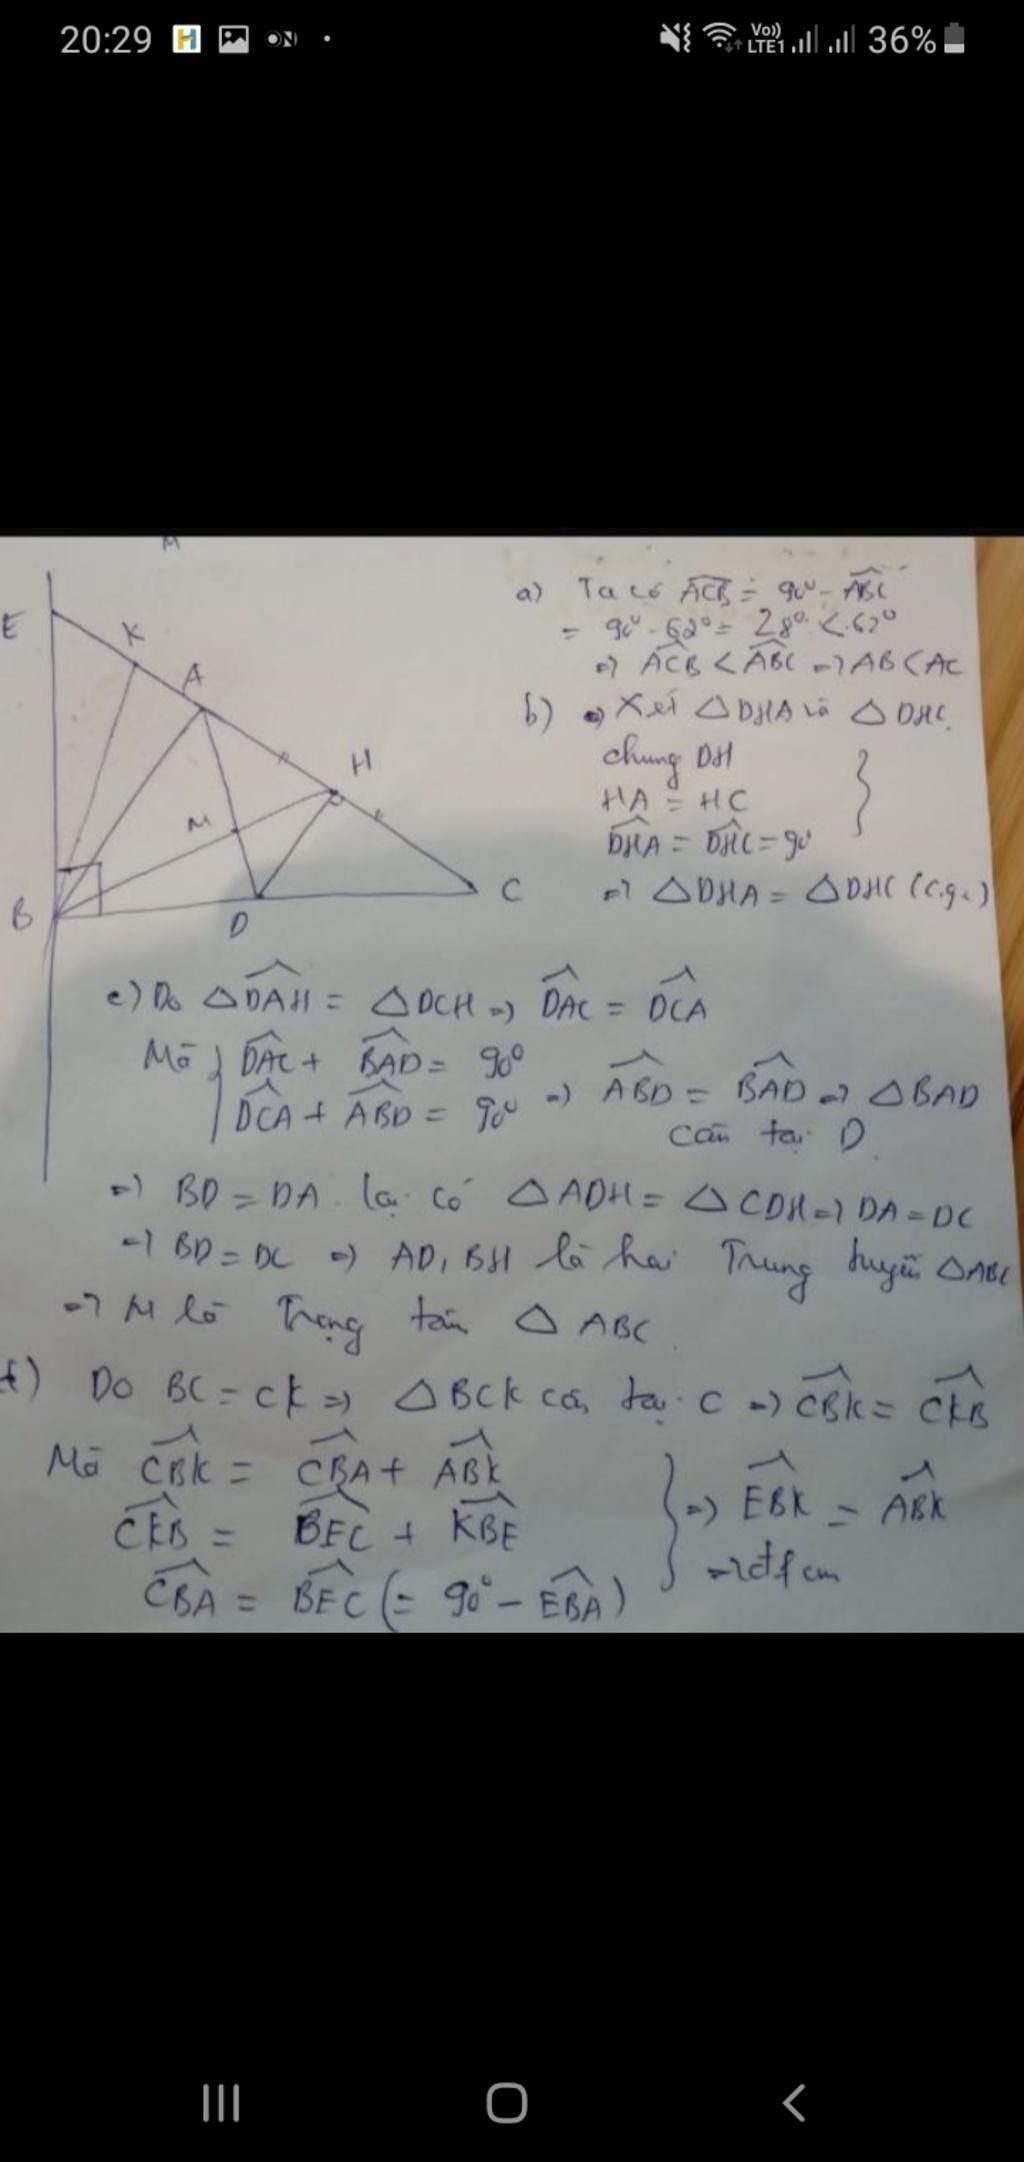 20:29 H N Vo)) LTE1 36%
M
E
K
A
H
M
B
D
C
a) Ta có ACB = 90° - ABC
= 90° - 62° = 28° < 62°
=> ACB < ABC => AB < AC
b) => Xét △DHA và △DHC
chung DH
HA = HC
DHA = DHC = 90
=> △DHA = △DHC (c.g.c)
c) Do △DAH = △DCH => DAC = DCA
Mà { DAC + BAD = 90°
DCA + ABD = 90° => ABD = BAD => △BAD
cân tại D
=> BD = DA. lại có △ADH = △CDH => DA = DC
=> BD = DC => AD, BH là hai Trung tuyến △ABC
=> M là Trọng tâm △ABC.
Do BC = CK => △BCK cân tại C => CBK = CKB
Mà CBK = CBA + ABK
CKB = BEC + KBE
CBA = BEC (= 90° - EBA)
} => EBK = ABK
=> đfcm